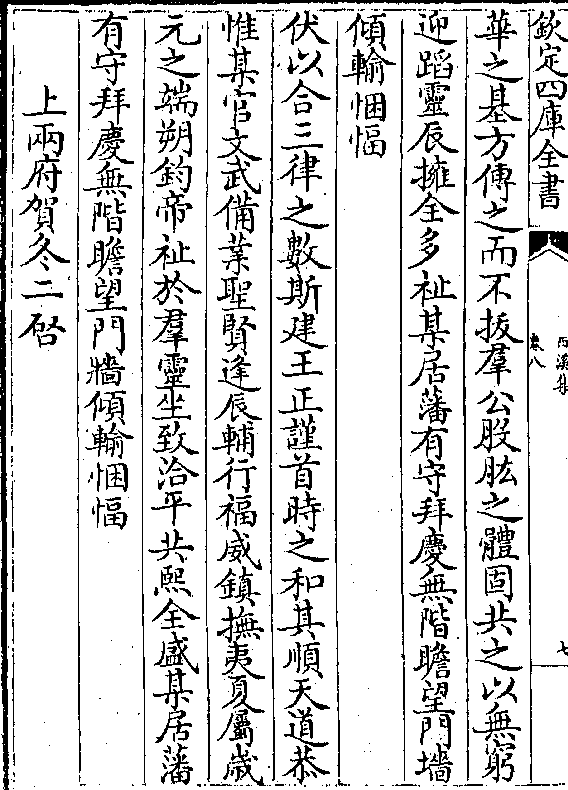 欽定四庫全書
西溪集
卷八
七
華之基方傳之而不拔羣公股肱之體固共之以無窮
迎蹈靈辰擁全多祉某居藩有守拜慶無階瞻望門墻
傾輸悃愊
伏以合三律之數斯建王正謹首時之和其順天道恭
惟某官文武備業聖賢逢辰輔行福威鎮撫夷夏屬歲
元之端朔鈞帝祉於羣靈坐致治平共熙全盛某居藩
有守拜慶無階瞻望門牆傾輸悃愊
上兩府賀冬二啓